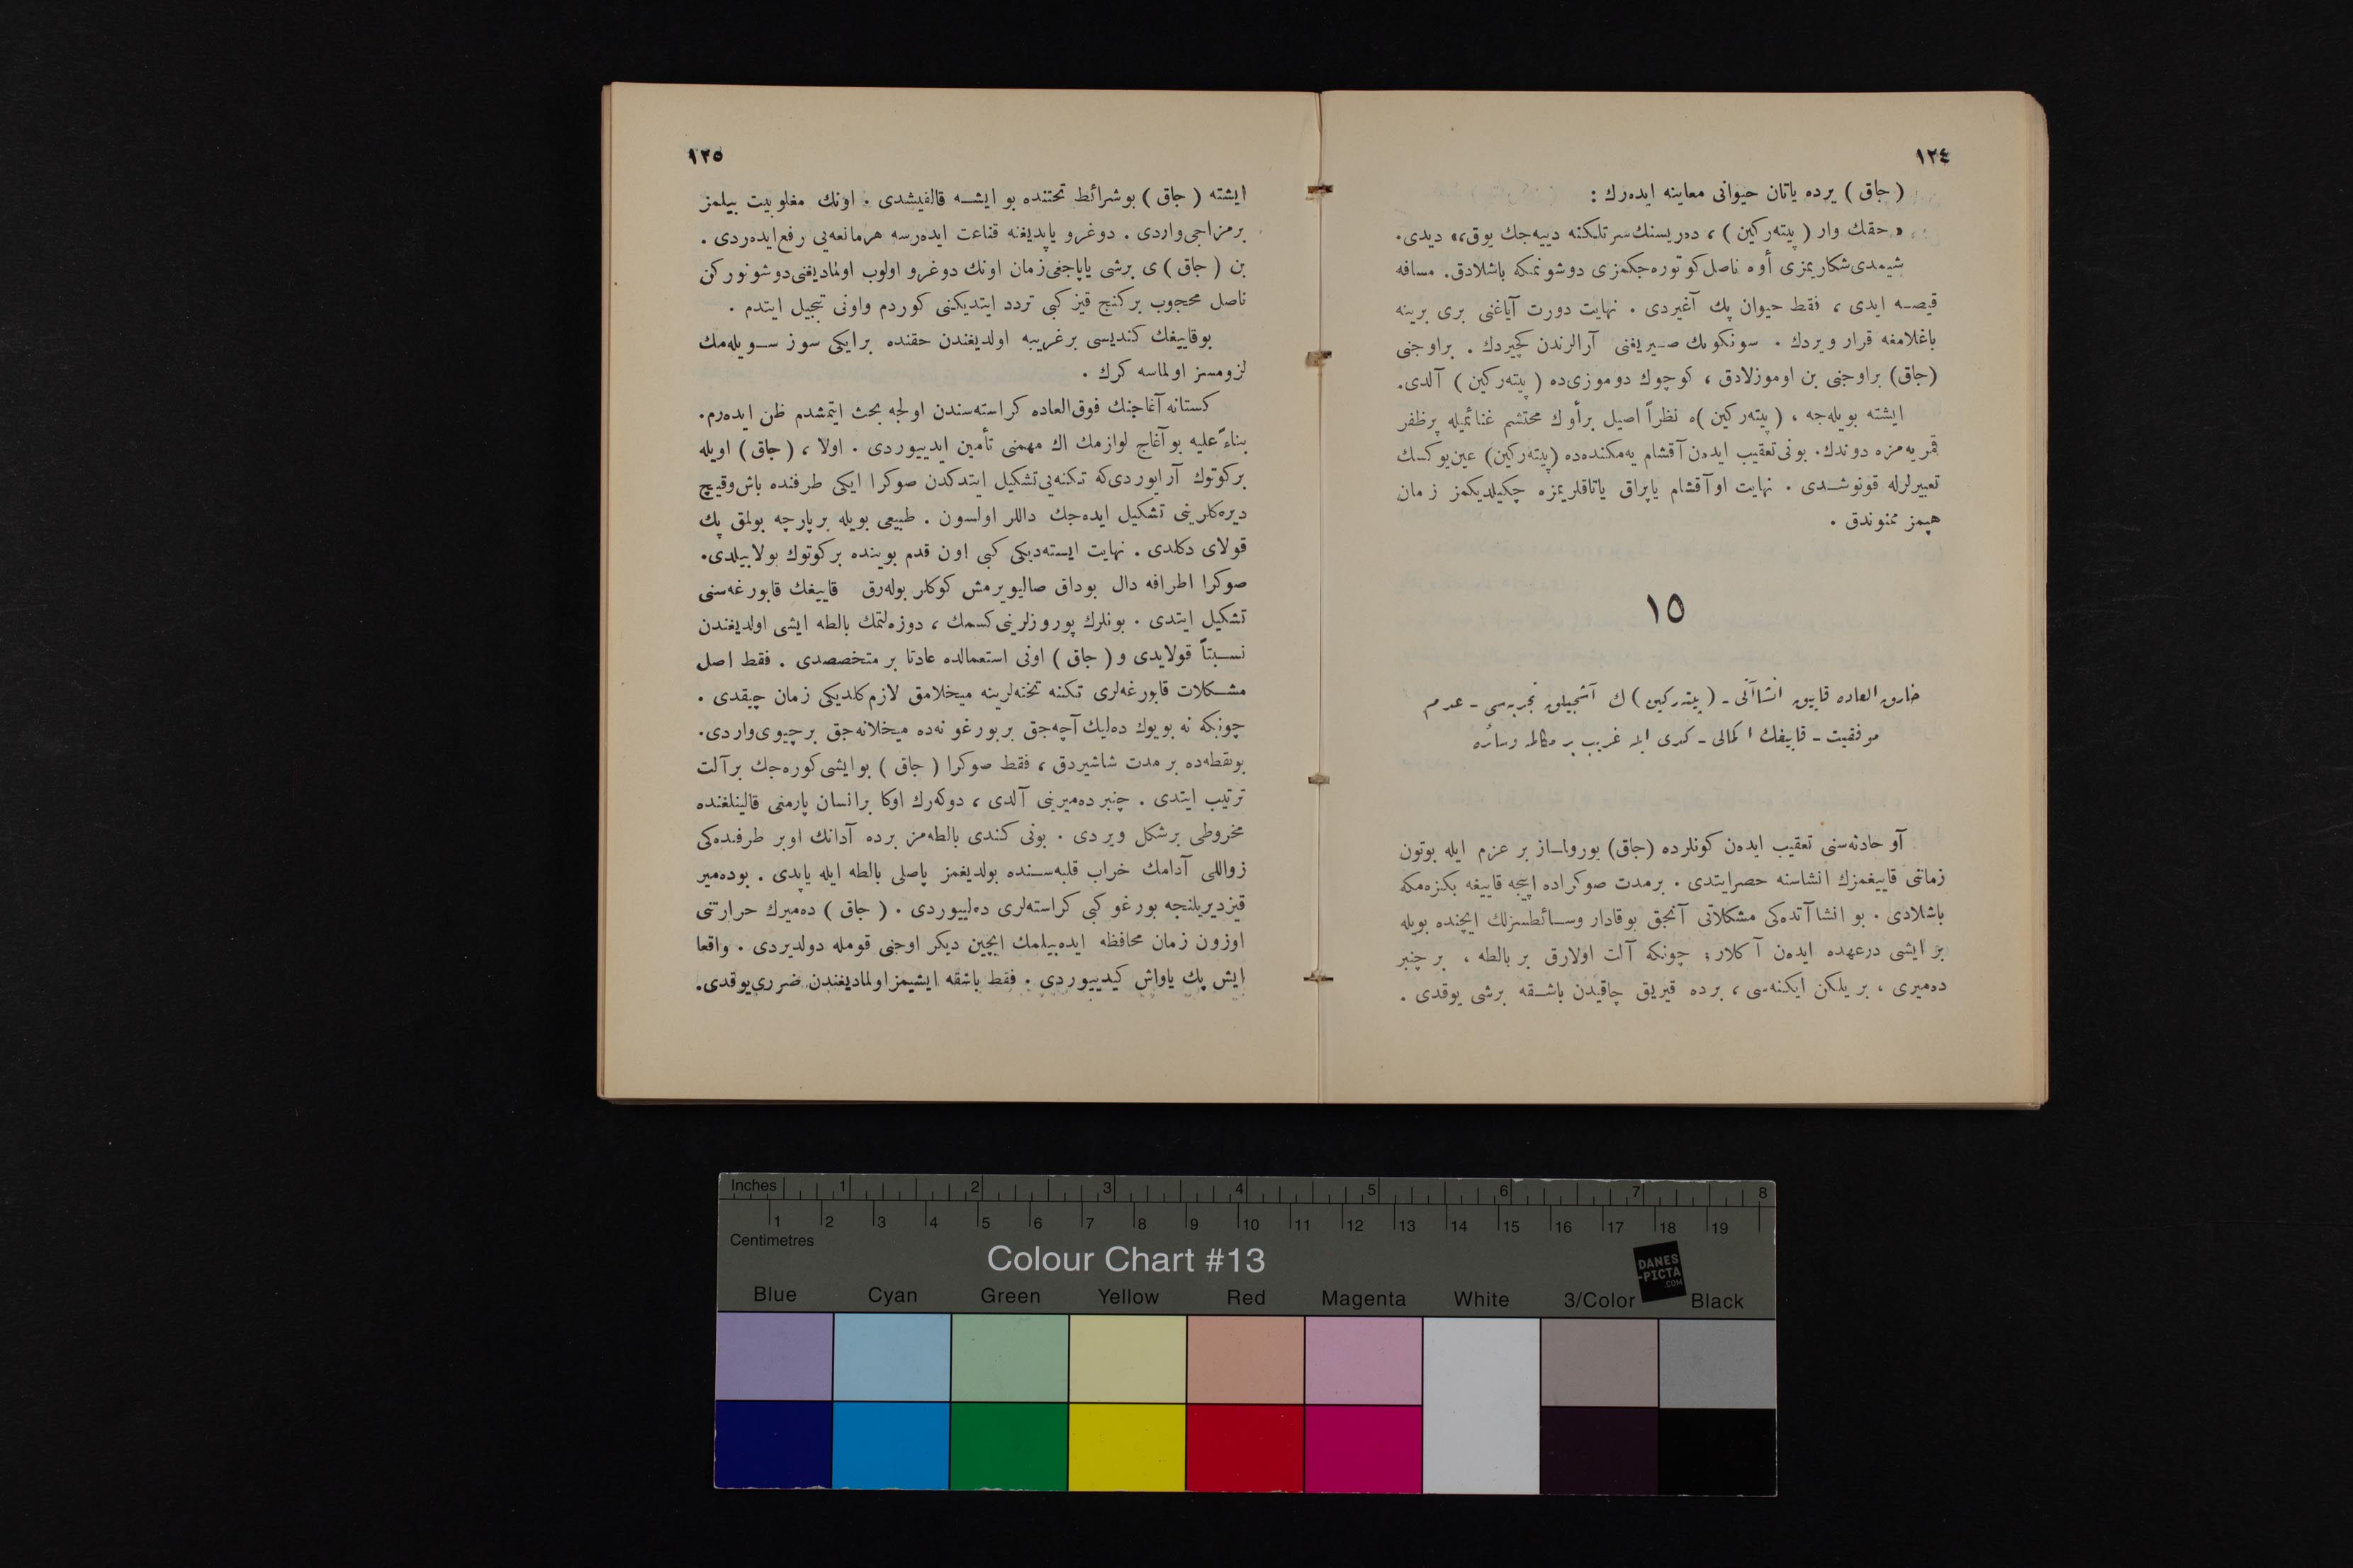 ١٢٤
( جاق ) يرده ياتان حيوانى معاينه ايده‌رك :
« حقك وار ( پيته‌ركين ) ، ده‌ريسنك سرتلكنه دييه‌جك يوق،» ديدى.
شيمدى شكاريمزى أوه ناصل كوتوره‌جكمزى دوشونمكه باشلادق. مسافه
قيصه ايدى ، فقط حيوان پك آغيردى . نهايت دورت آياغنى برى برينه
باغلامغه قرار ويردك . سونكونك صيريغنى آرالرندن كچيردك . براوجنى
(جاق) براوجنى بن اوموزلادق ، كوچوك دوموزى‌ده ( پيته‌ركين ) آلدى.
ايشته بويله‌جه ، ( پيته‌ركين )ه نظراً اصيل برأوك محتشم غنائميله پرظفر
قريه‌مزه دوندك. بونى تعقيب ايدەن آقشام يه‌مكنده‌ده (پيته‌ركين) عين يوكسك
تعبيرلرله قونوشدى . نهايت اوآقشام ياپراق ياتاقلريمزه چكيلديكمز زمان
هپمز ممنوندق .
١٥
خارق العاده قايق انشاآتى ـ ( پيته‌ركين ) ك آشجيلق تجربه‌سى ـ عدم
موفقيت ـ قاييغك اكمالى ـ كدى ايله غريب بر مكالمه وسائره
آو حادثه‌سنى تعقيب ايدەن كونلرده (جاق) يورولماز بر عزم ايله بوتون
زماننى قاييغمزك انشاسنه حصرايتدى . برمدت صوكراده اپيجه قاييغه بكزه‌مكه
باشلادى . بو انشاآتده‌كى مشكلاتى آنجق بوقادار وسائطسزلك ايچنده بويله
بر ايشى درعهده ايدەن آكلار؛ چونكه آلت اولارق بر بالطه ، بر چنبر
ده‌ميرى ، بر يلكن ايكنه‌سى ، برده قيريق چاقيدن باشقه برشى يوقدى .
١٢٥
ايشته ( جاق ) بوشرائط تحتنده بو ايشه قالقيشدى . اونك مغلوبيت بيلمز
برمزاجى واردى . دوغرو ياپديغنه قناعت ايده‌رسه هرمانعه‌يى رفع ايده‌ردى .
بن ( جاق ) ى برشى ياپاجغى زمان اونك دوغرو اولوب اولماديغنى دوشونوركن
ناصل محجوب بركنج قيز كبى تردد ايتديكنى كوردم واونى تبجيل ايتدم .
بوقاييغك كنديسى برغريبه اولديغندن حقنده برايكى سوز سويله‌مك
لزومسز اولماسه كرك .
كستانه آغاجنك فوق‌العاده كراسته‌سندن اولجه بحث ايتمشدم ظن ايده‌رم.
بناءً عليه بو آغاج لوازمك اك مهمنى تأمين ايدييوردى . اولا ، ( جاق ) اويله
بركوتوك آرايوردى‌كه تكنه‌يى تشكيل ايتدكدن صوكرا ايكى طرفنده باش وقيچ
ديره‌كلرينى تشكيل ايده‌جك داللر اولسون . طبيعى بويله برپارچه بولمق پك
قولاى دكلدى . نهايت ايسته‌ديكى كبى اون قدم بوينده بركوتوك بولابيلدى.
صوكرا اطرافه دال بوداق صاليويرمش كوكلر بوله‌رق قاييغك قابورغه‌سنى
تشكيل ايتدى . بونلرك پوروزلرينى كسمك ، دوزه‌لتمك بالطه ايشى اولديغندن
نسبتاً قولايدى و ( جاق ) اونى استعمالده عادتا بر متخصصدى . فقط اصل
مشكلات قابورغه‌لرى تكنه تخته‌لرينه ميخلامق لازم كلديكى زمان چيقدى .
چونكه نه بويوك ده‌ليك آچه‌جق بربورغو نه‌ده ميخلانه‌جق برچيوى واردى.
بونقطه‌ده برمدت شاشيردق ، فقط صوكرا ( جاق ) بوايشى كوره‌جك برآلت
ترتيب ايتدى . چنبر ده‌ميرينى آلدى ، دوكه‌رك اوكا برانسان پارمغى قالينلغنده
مخروطى برشكل ويردى . بونى كندى بالطه‌مز برده آدانك اوبر طرفنده‌كى
زواللى آدامك خراب قلبه‌سنده بولديغمز پاصلى بالطه ايله ياپدى . بوده‌مير
قيزديريلنجه بورغو كبى كراسته‌لرى ده‌لييوردى . ( جاق ) ده‌ميرك حرارتنى
اوزون زمان محافظه ايده‌بيلمك ايچين ديكر اوجنى قومله دولديردى . واقعا
ايش پك ياواش كيدييوردى . فقط باشقه ايشيمز اولماديغندن ضررى يوقدى.
Inches 1 2 3 4 5 6 7 8
1 2 3 4 5 6 7 8 9 10 11 12 13 14 15 16 17 18 19
Centimetres
Colour Chart #13
DANES
-PICTA
.COM
Blue Cyan Green Yellow Red Magenta White 3/Color Black